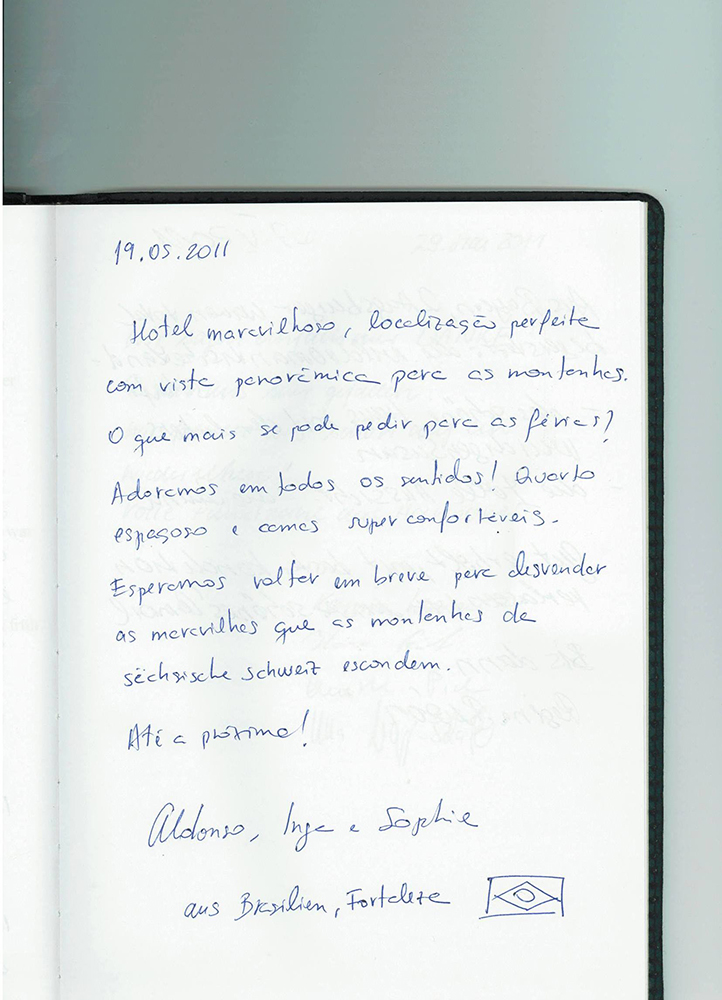 19.05.2011
Hotel maravilhoso, localização perfeita
com vista panorâmica para as montanhas.
O que mais se pode pedir para as férias?
Adoramos em todos os sentidos! Quarto
espaçoso e camas super confortáveis.
Esperamos voltar em breve para desvendar
as maravilhas que as montanhas da
sächsische schweiz escondem.
Até a próxima!
Aldonso, Inga e Sophie
aus Brasilien, Fortaleza